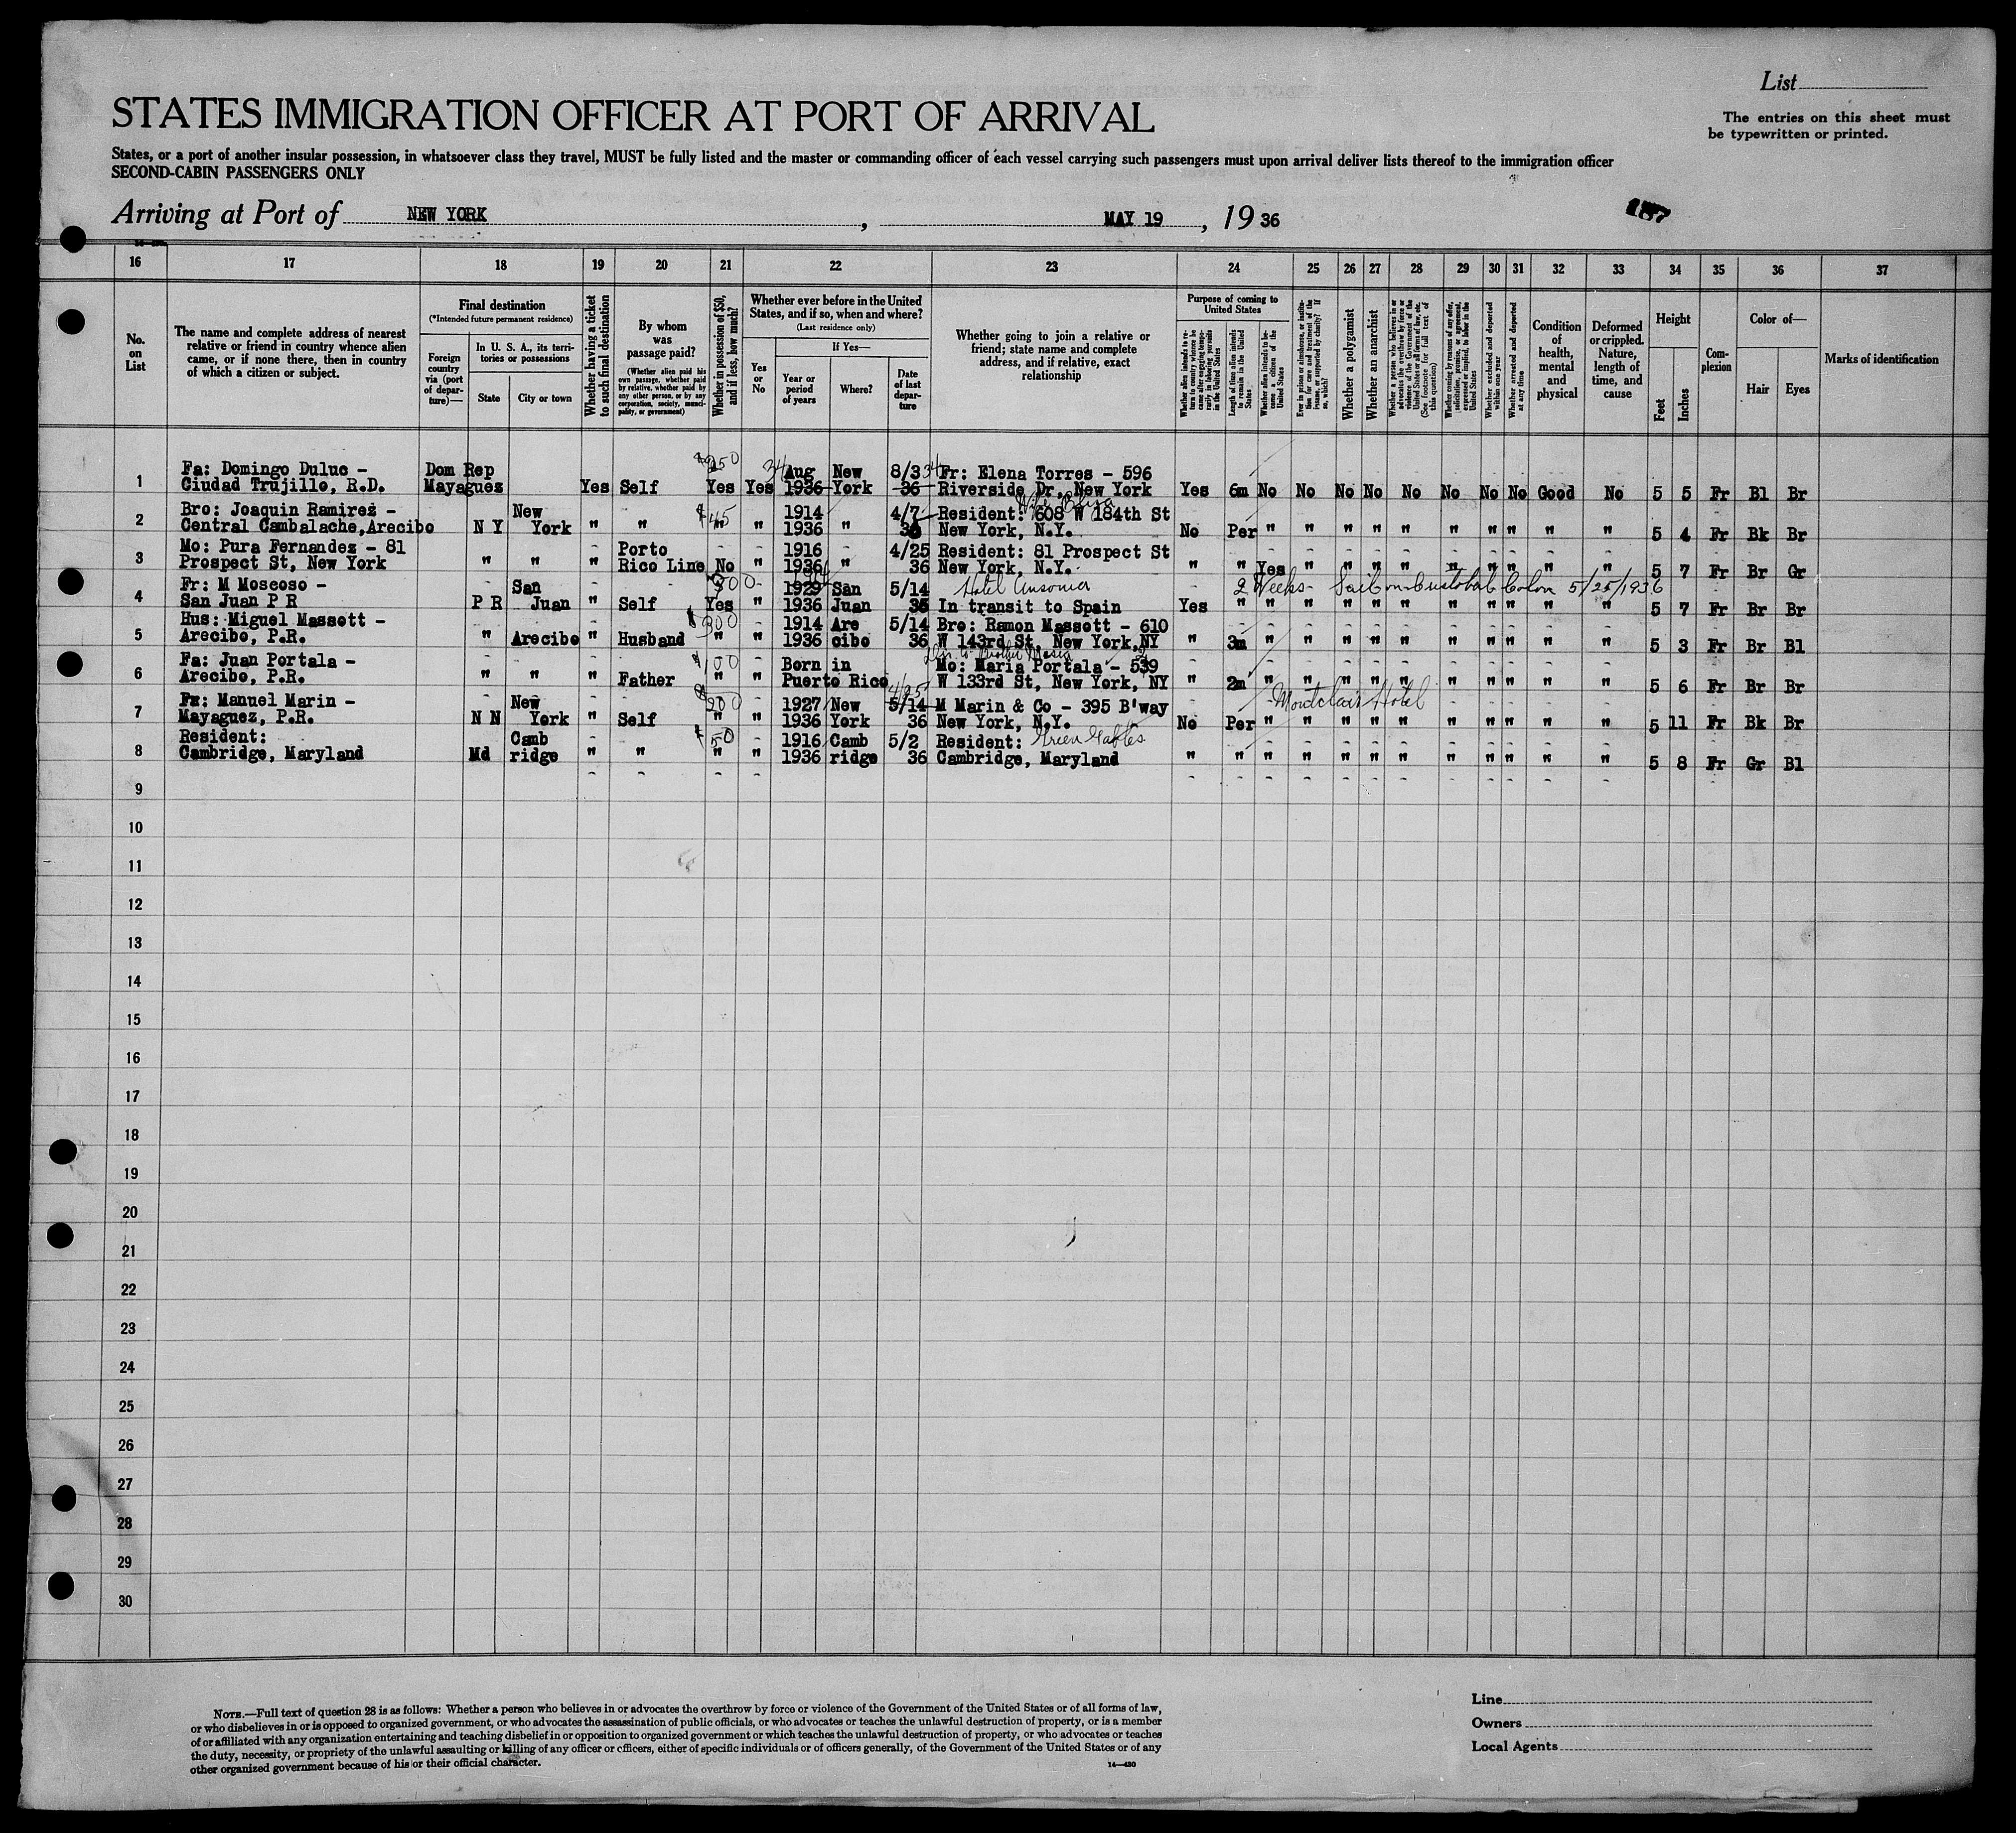 List
The entries on this sheet must
be typewritten or printed.
STATES IMMIGRATION OFFICER AT PORT OF ARRIVAL
States, or a port of another insular possession, in whatsoever class they travel, MUST be fully listed and the master or commanding officer of each vessel carrying such passengers must upon arrival deliver lists thereof to the immigration officer
SECOND-CABIN PASSENGERS ONLY
Arriving at Port of NEW YORK, MAY 19, 1936
187
16 17 18 19 20 21 22 23 24 25 26 27 28 29 30 31 32 33 34 35 36 37
No.
on
List
The name and complete address of nearest
relative or friend in country whence alien
came, or if none there, then in country
of which a citizen or subject.
Final destination
(*Intended future permanent residence)
Foreign
country
via (port
of depar-
ture)—
In U. S. A., its terri-
tories or possessions
State
City or town
Whether having a ticket
to such final destination
By whom
was
passage paid?
(Whether alien paid his
own passage, whether paid
by relative, whether paid by
any other person, or by any
corporation, society, munici-
pality, or government)
Whether in possession of $50,
and if less, how much?
Whether ever before in the United
States, and if so, when and where?
(Last residence only)
Yes
or
No
If Yes—
Year or
period
of years
Where?
Date
of last
depar-
ture
Whether going to join a relative or
friend; state name and complete
address, and if relative, exact
relationship
Purpose of coming to
United States
Length of time alien intends
to remain in the United
States
Whether alien intends to be-
come a citizen of the
United States
Whether a polygamist
Whether an anarchist
Whether excluded and deported
within one year
Whether arrested and deported
at any time
Condition
of
health,
mental
and
physical
Deformed
or crippled.
Nature,
length of
time, and
cause
Height
Feet
Inches
Com-
plexion
Color of—
Hair
Eyes
Marks of identification
Fa: Domingo Duluc - Dom Rep $250 34 Aug New 8/3 34 Fr: Elena Torres - 596
1 Ciudad Trujillo, R.D. Mayaguez Yes Self Yes Yes 1936 York 36 Riverside Dr, New York Yes 6m No No No No No No No No Good No 5 5 Fr Bl Br
Bro: Joaquin Ramirez - New $45 1914 4/7 Resident: 608 W 184th St
2 Central Cambalache, Arecibo N Y York " " " " 1936 " 36 New York, N.Y. No Per " " " " " " " " " " 5 4 Fr Bk Br
Mo: Pura Fernandez - 81 Porto 1916 4/25 Resident: 81 Prospect St
3 Prospect St, New York " " " Rico Line No " 1936 " 36 New York, N.Y. " " Yes " " " " " " " " " 5 7 Fr Br Gr
Fr: M Moscoso - San 300 1929 San 5/14 Hotel Ansonia 2 Weeks - Sail on Cristobal Colon 5/25/1936
4 San Juan P R P R Juan " Self Yes " 1936 Juan 36 In transit to Spain Yes " " " " " " " " " " " 5 7 Fr Br Br
Hus: Miguel Massott - $300 1914 Are 5/14 Bro: Ramon Massott - 610
5 Arecibo, P.R. " Arecibo " Husband " " 1936 cibo 36 W 143rd St, New York, NY " 3m " " " " " " " " " " 5 3 Fr Br Bl
Fa: Juan Portala - $100 Born in Mo: Maria Portala - 539
6 Arecibo, P.R. " " " Father " " Puerto Rico W 133rd St, New York, NY " 2m " " " " " " " " " " 5 6 Fr Br Br
Fa: Manuel Marin - New $200 1927 New 5/14 4/25 M Marin & Co - 395 B'way Montclair Hotel
7 Mayaguez, P.R. N N York " Self " " 1936 York 36 New York, N.Y. No Per " " " " " " " " " " 5 11 Fr Bk Br
Resident: Camb $50 1916 Camb 5/2 Resident: Green Gables
8 Cambridge, Maryland Md ridge " " " " 1936 ridge 36 Cambridge, Maryland " " " " " " " " " " " " 5 8 Fr Gr Bl
9
10
11
12
13
14
15
16
17
18
19
20
21
22
23
24
25
26
27
28
29
30
NOTE.—Full text of question 28 is as follows: Whether a person who believes in or advocates the overthrow by force or violence of the Government of the United States or of all forms of law,
or who disbelieves in or is opposed to organized government, or who advocates the assassination of public officials, or who advocates or teaches the unlawful destruction of property, or is a member
of or affiliated with any organization entertaining and teaching disbelief in or opposition to organized government or which teaches the unlawful destruction of property, or who advocates or teaches
the duty, necessity, or propriety of the unlawful assaulting or killing of any officer or officers, either of specific individuals or of officers generally, of the Government of the United States or of any
other organized government because of his or their official character.
14—430
Line
Owners
Local Agents